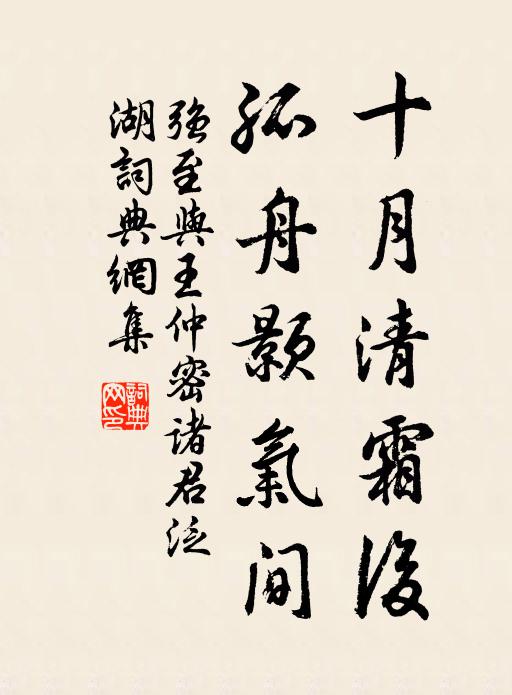 十月清霜後
孤舟顥氣间
強至與王仲密諸君泛
湖詞典網集
詞典网印